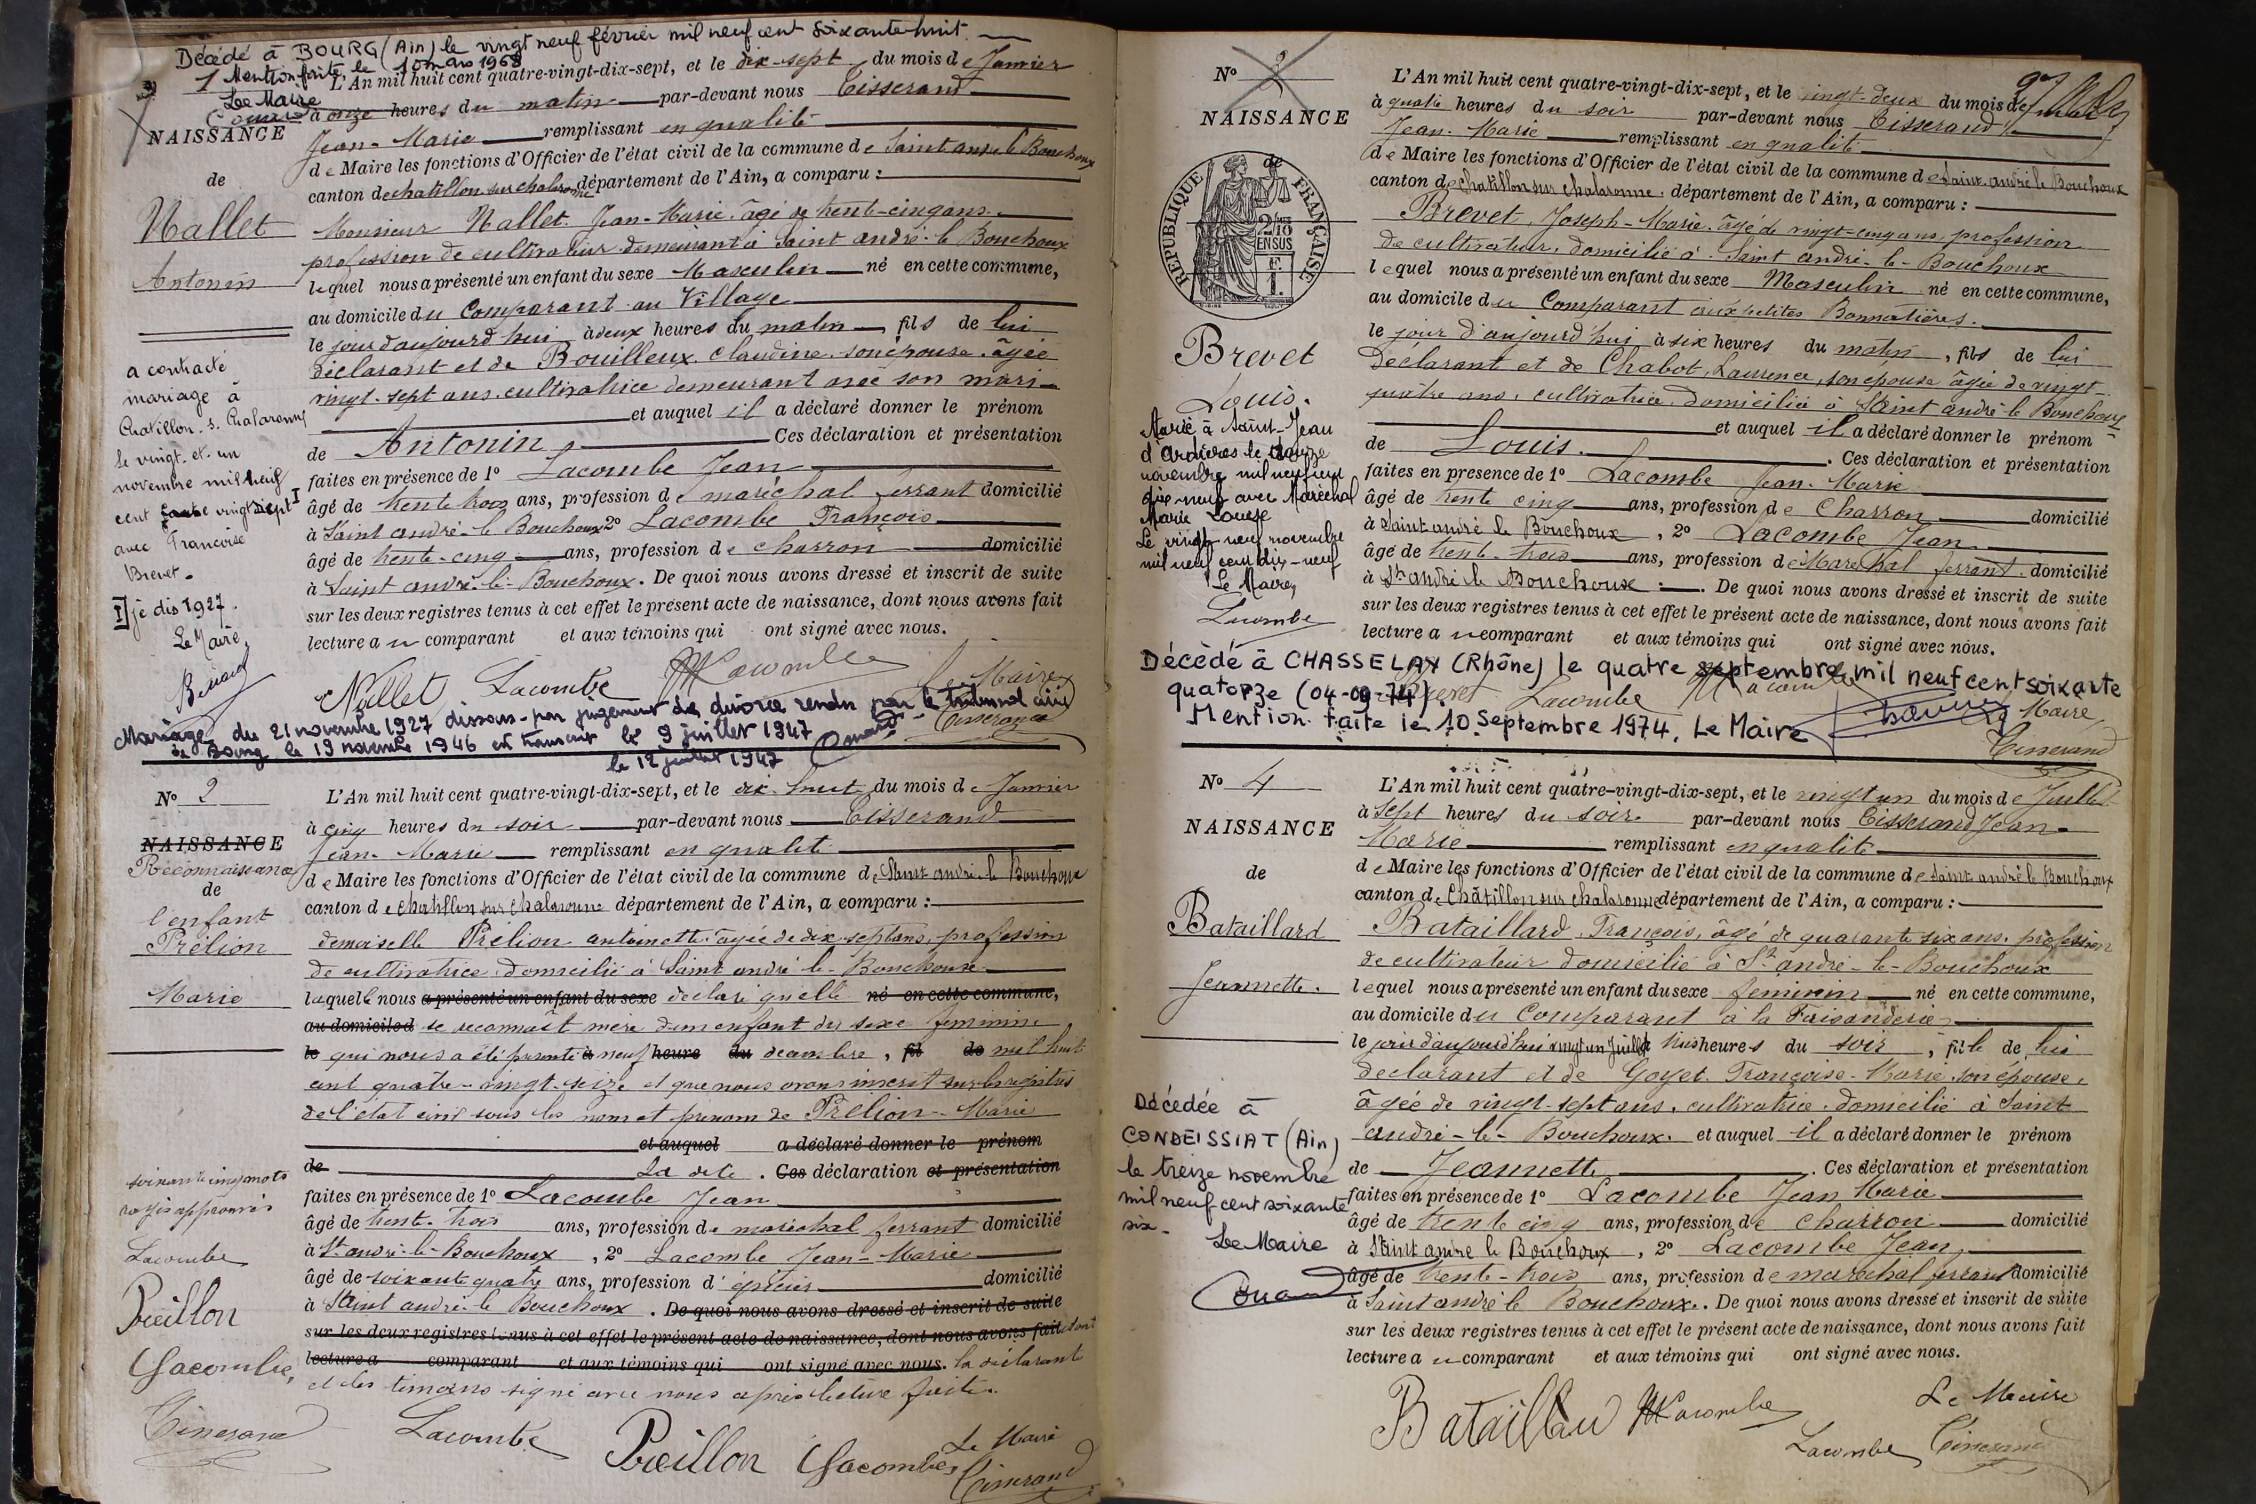 Décédé à BOURG (Ain) le vingt neuf février mil neuf cent soixante huit.
Mention faite, le 10 mars 1968
Le Maire
1
NAISSANCE
de
Nallet
Antonin
L'An mil huit cent quatre-vingt-dix-sept, et le dix-sept du mois de Janvier
à onze heures du matin par-devant nous Tisserand
Jean-Marie remplissant en qualité
de Maire les fonctions d'Officier de l'état civil de la commune de Saint andré le Bouchoux
canton de chatillon sur chalaronne département de l'Ain, a comparu :
Monsieur Nallet Jean-Marie âgé de trente-cinq ans
profession de cultivateur demeurant à Saint andré-le Bouchoux
lequel nous a présenté un enfant du sexe Masculin né en cette commune,
au domicile du Comparant au Village
le jour d'aujourd'hui à deux heures du matin, fils de lui
déclarant et de Bouilleux Claudine son épouse âgée
vingt-sept ans cultivatrice demeurant avec son mari
et auquel il a déclaré donner le prénom
de Antonin Ces déclaration et présentation
faites en présence de 1° Lacombe Jean
âgé de trente trois ans, profession de maréchal ferrant domicilié
à Saint andré-le Bouchoux 2° Lacombe François
âgé de trente-cinq ans, profession de charron domicilié
à Saint andré-le-Bouchoux. De quoi nous avons dressé et inscrit de suite
sur les deux registres tenus à cet effet le présent acte de naissance, dont nous avons fait
lecture au comparant et aux témoins qui ont signé avec nous.
a contracté
mariage à
Chatillon. s. Chalaronne
le vingt. et. un
novembre mil neuf
cent vingt sept I
avec Francoise
Brevet.
I je dis 1927.
Le Maire,
Nallet Lacombe Lacombe Le Maire
Tisserand
Mariage du 21 novembre 1927 dissous par jugement de divorce rendu par le tribunal civil
de Bourg le 19 novembre 1946 et transcrit le 9 juillet 1947
le 12 juillet 1947
N° 2
NAISSANCE
Reconnaissance
de
l'enfant
Prélion
Marie
L'An mil huit cent quatre-vingt-dix-sept, et le dix-huit du mois de Janvier
à cinq heures du soir par-devant nous Tisserand
Jean-Marie remplissant en qualité
de Maire les fonctions d'Officier de l'état civil de la commune de Saint andré-le Bouchoux
canton de chatillon sur chalaronne département de l'Ain, a comparu :
demoiselle Prélion antoinette âgée de dix-sept ans, profession
de cultivatrice domicilié à Saint andré-le-Bouchoux
laquelle nous a présenté un enfant du sexe déclaré qu'elle né en cette commune,
au domicile d se reconnaît mère d'un enfant du sexe feminin
le qui nous a été présenté à neuf heure du decembre, fil de mil huit
cent quatre-vingt-seize et que nous avons inscrit sur les registres
de l'état civil sous les nom et prénom de Prélion-Marie
et auquel a déclaré donner le prénom
de La dite. Ces déclaration et présentation
faites en présence de 1° Lacombe Jean
âgé de trente-trois ans, profession de maréchal ferrant domicilié
à St andré-le-Bouchoux, 2° Lacombe Jean-Marie
âgé de soixante quatre ans, profession d' épicier domicilié
à Saint andré-le Bouchoux. De quoi nous avons dressé et inscrit de suite
sur les deux registres tenus à cet effet le présent acte de naissance, dont nous avons fait
lecture a comparant et aux témoins qui ont signé avec nous. la déclarant
et les témoins signé avec nous après lecture faite.
soixante cinq mots
rayés approuvés
Lacombe
Préillon
Lacombe,
Tisserand
Lacombe Préillon Lacombe Le Maire
Tisserand
N° 3
NAISSANCE
de
RÉPUBLIQUE FRANÇAISE
Brevet
Louis.
L'An mil huit cent quatre-vingt-dix-sept, et le vingt-deux du mois de
à quatre heures du soir par-devant nous Tisserand
Jean-Marie remplissant en qualité
de Maire les fonctions d'Officier de l'état civil de la commune de Saint-andré le Bouchoux
canton de chatillon sur chalaronne. département de l'Ain, a comparu :
Brevet, Joseph-Marie. âgé de vingt-cinq ans, profession
de cultivateur, domicilié à Saint andré-le-Bouchoux
lequel nous a présenté un enfant du sexe Masculin né en cette commune,
au domicile du Comparant aux petites Bonnatières.
le jour d'aujourd'hui à six heures du matin, fils de lui
déclarant et de Chabot, Laurence, son épouse âgée de vingt-
quatre ans, cultivatrice domicilié à Saint andré-le Bouchoux
et auquel il a déclaré donner le prénom
de Louis. Ces déclaration et présentation
faites en présence de 1° Lacombe Jean-Marie
âgé de trente cinq ans, profession de Charron domicilié
à Saint andré le Bouchoux, 2° Lacombe Jean
âgé de trente-trois ans, profession de Marechal ferrant. domicilié
à St andré le Bouchoux. De quoi nous avons dressé et inscrit de suite
sur les deux registres tenus à cet effet le présent acte de naissance, dont nous avons fait
lecture au comparant et aux témoins qui ont signé avec nous.
Marié à Saint-Jean
d'Ardières le douze
novembre mil neuf cent
dix-neuf avec Maréchal
Marie Louise
Le vingt-neuf novembre
mil neuf cent dix-neuf
Le Maire,
Lacombe
Décédé à CHASSELAY (Rhône) le quatre septembre mil neuf cent soixante
quatorze (04-09-74).
Mention faite le 10 Septembre 1974, Le Maire
Brevet Lacombe Lacombe Le Maire,
Tisserand
N° 4
NAISSANCE
de
Bataillard
Jeannette.
L'An mil huit cent quatre-vingt-dix-sept, et le vingt un du mois de Juillet
à Sept heures du soir par-devant nous Tisserand Jean-
Marie remplissant en qualité
de Maire les fonctions d'Officier de l'état civil de la commune de Saint andré le Bouchoux
canton de Châtillon sur chalaronne département de l'Ain, a comparu :
Bataillard, François, âgé de quarante six ans, profession
de cultivateur domicilié à St andré-le-Bouchoux
lequel nous a présenté un enfant du sexe feminin né en cette commune,
au domicile du Comparant à la Faisanderie
le jour d'aujourd'hui vingt un Juillet trois heures du soir, fille de lui
déclarant et de Goyet Françoise-Marie, son épouse,
âgée de vingt-sept ans, cultivatrice domicilié à Saint
andré-le-Bouchoux. et auquel il a déclaré donner le prénom
de Jeannette. Ces déclaration et présentation
faites en présence de 1° Lacombe Jean Marie
âgé de trente cinq ans, profession de charron domicilié
à Saint andre le Bouchoux, 2° Lacombe Jean,
âgé de trente-trois ans, profession de marechal ferrant domicilié
à Saint andré le Bouchoux. De quoi nous avons dressé et inscrit de suite
sur les deux registres tenus à cet effet le présent acte de naissance, dont nous avons fait
lecture au comparant et aux témoins qui ont signé avec nous.
Décédée à
CONDEISSIAT (Ain)
le treize novembre
mil neuf cent soixante
six-
Le Maire
Bataillard Lacombe Le Maire
Lacombe Tisserand